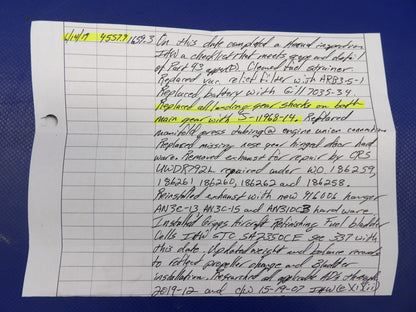 6/14/19 4557.9 1659.3 On this date complete a Annual inspection
IAW a checklist that meets scope and detail
of Part 43 app(D). Cleaned fuel strainer.
Replaced vac. relief filter with AP83-5-1
Replaced battery with Gill 7035-34.
Replaced all landing gear shocks on both
main gear with J-11968-14. Replaced
manifold press tubing @ engine union connection
Replaced missing nose gear hinged door hard
ware. Removed exhaust for repair by CRS
UWDR792L repaired under WO 186259,
186261 186260, 186262 and 186258.
Reinstalled exhaust with new 416006 hanger
AN3C-13 AN3C-15 and AN310C3 hardware
Installed Griggs Aircraft Refinishing Fuel bladder
Cells IAW STC SA2350CE see 337 with
this date. Updated weight and balance records
to reflect propeller change and Bladder
installation. Researched all applicable ADs through
2019-12 and c/w 15-19-07 IAW